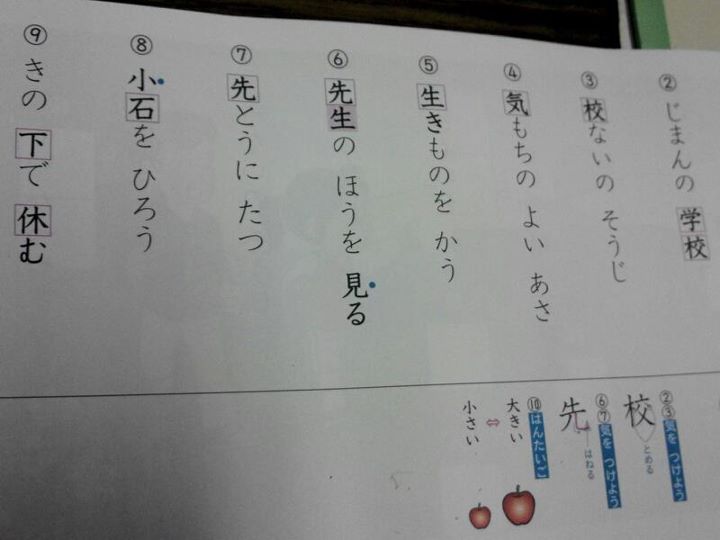 ② じまんの 学校
③ 校ないの そうじ
④ 気もちの よい あさ
⑤ 生きものを かう
⑥ 先生の ほうを 見る
⑦ 先とうに たつ
⑧ 小石を ひろう
⑨ きの 下で 休む
②③ 気を つけよう
校
とめる
⑥⑦ 気を つけよう
先
はねる
⑩ はんたいご
大きい
⇔
小さい